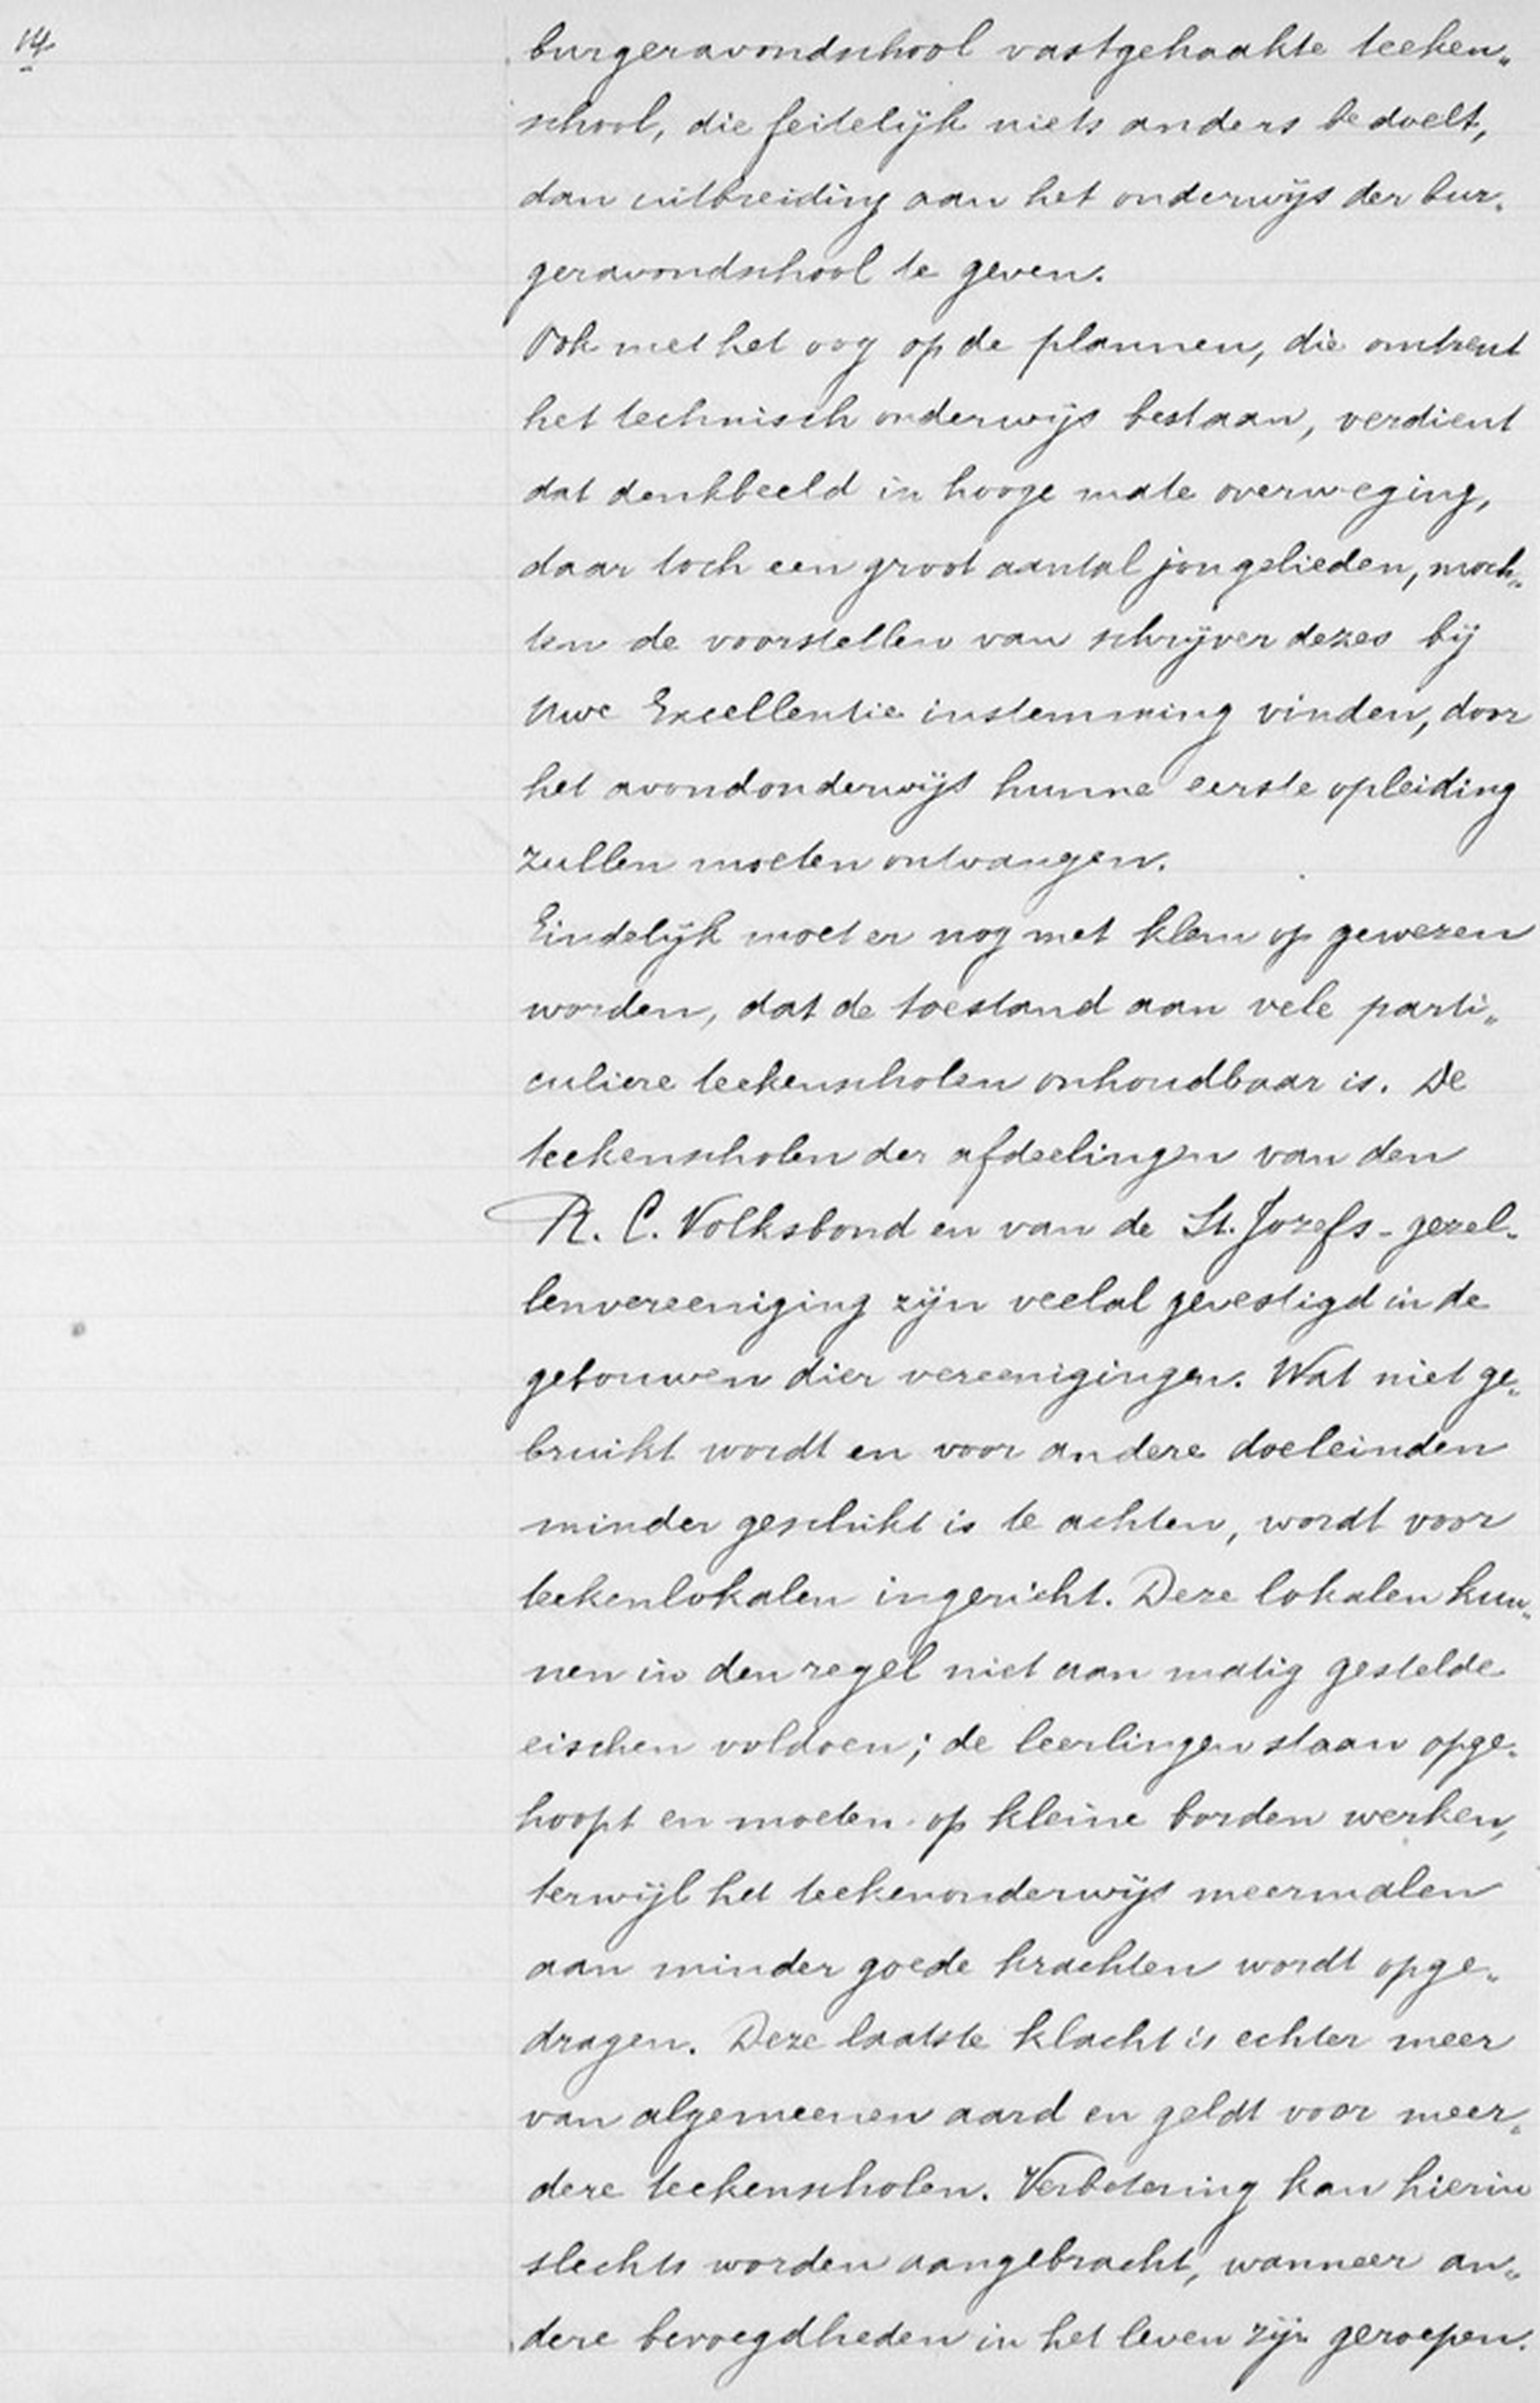 14
burgeravondschool vastgehaakte teeken„
school, die feitelijk niets anders bedoelt,
dan uitbreiding aan het onderwijs der bur„
geravondschool te geven.
Ook met het oog op de plannen, die omtrent
het technisch onderwijs bestaan, verdient
dat denkbeeld in hooge mate overweging,
daar toch een groot aantal jongelieden, moch„
ten de voorstellen van schrijver dezes bij
Uwe Excellentie instemming vinden, door
het avondonderwijs hunne eerste opleiding
zullen moeten ontvangen.
Eindelijk moet er nog met klem op gewezen
worden, dat de toestand aan vele parti„
culiere teekenscholen onhoudbaar is. De
teekenscholen der afdeelingen van den
R. C. Volksbond en van de St. Jozefs-gezel„
lenvereeniging zijn veelal gevestigd in de
gebouwen dier vereenigingen. Wat niet ge„
bruikt wordt en voor andere doeleinden
minder geschikt is te achten, wordt voor
teekenlokalen ingericht. Deze lokalen kun„
nen in den regel niet aan matig gestelde
eischen voldoen; de leerlingen staan opge„
hoopt en moeten op kleine borden werken,
terwijl het teekenonderwijs meermalen
aan minder goede krachten wordt opge„
dragen. Deze laatste klacht is echter meer
van algemeenen aard en geldt voor meer„
dere teekenscholen. Verbetering kan hierin
slechts worden aangebracht, wanneer an„
dere bevoegdheden in het leven zijn geroepen.